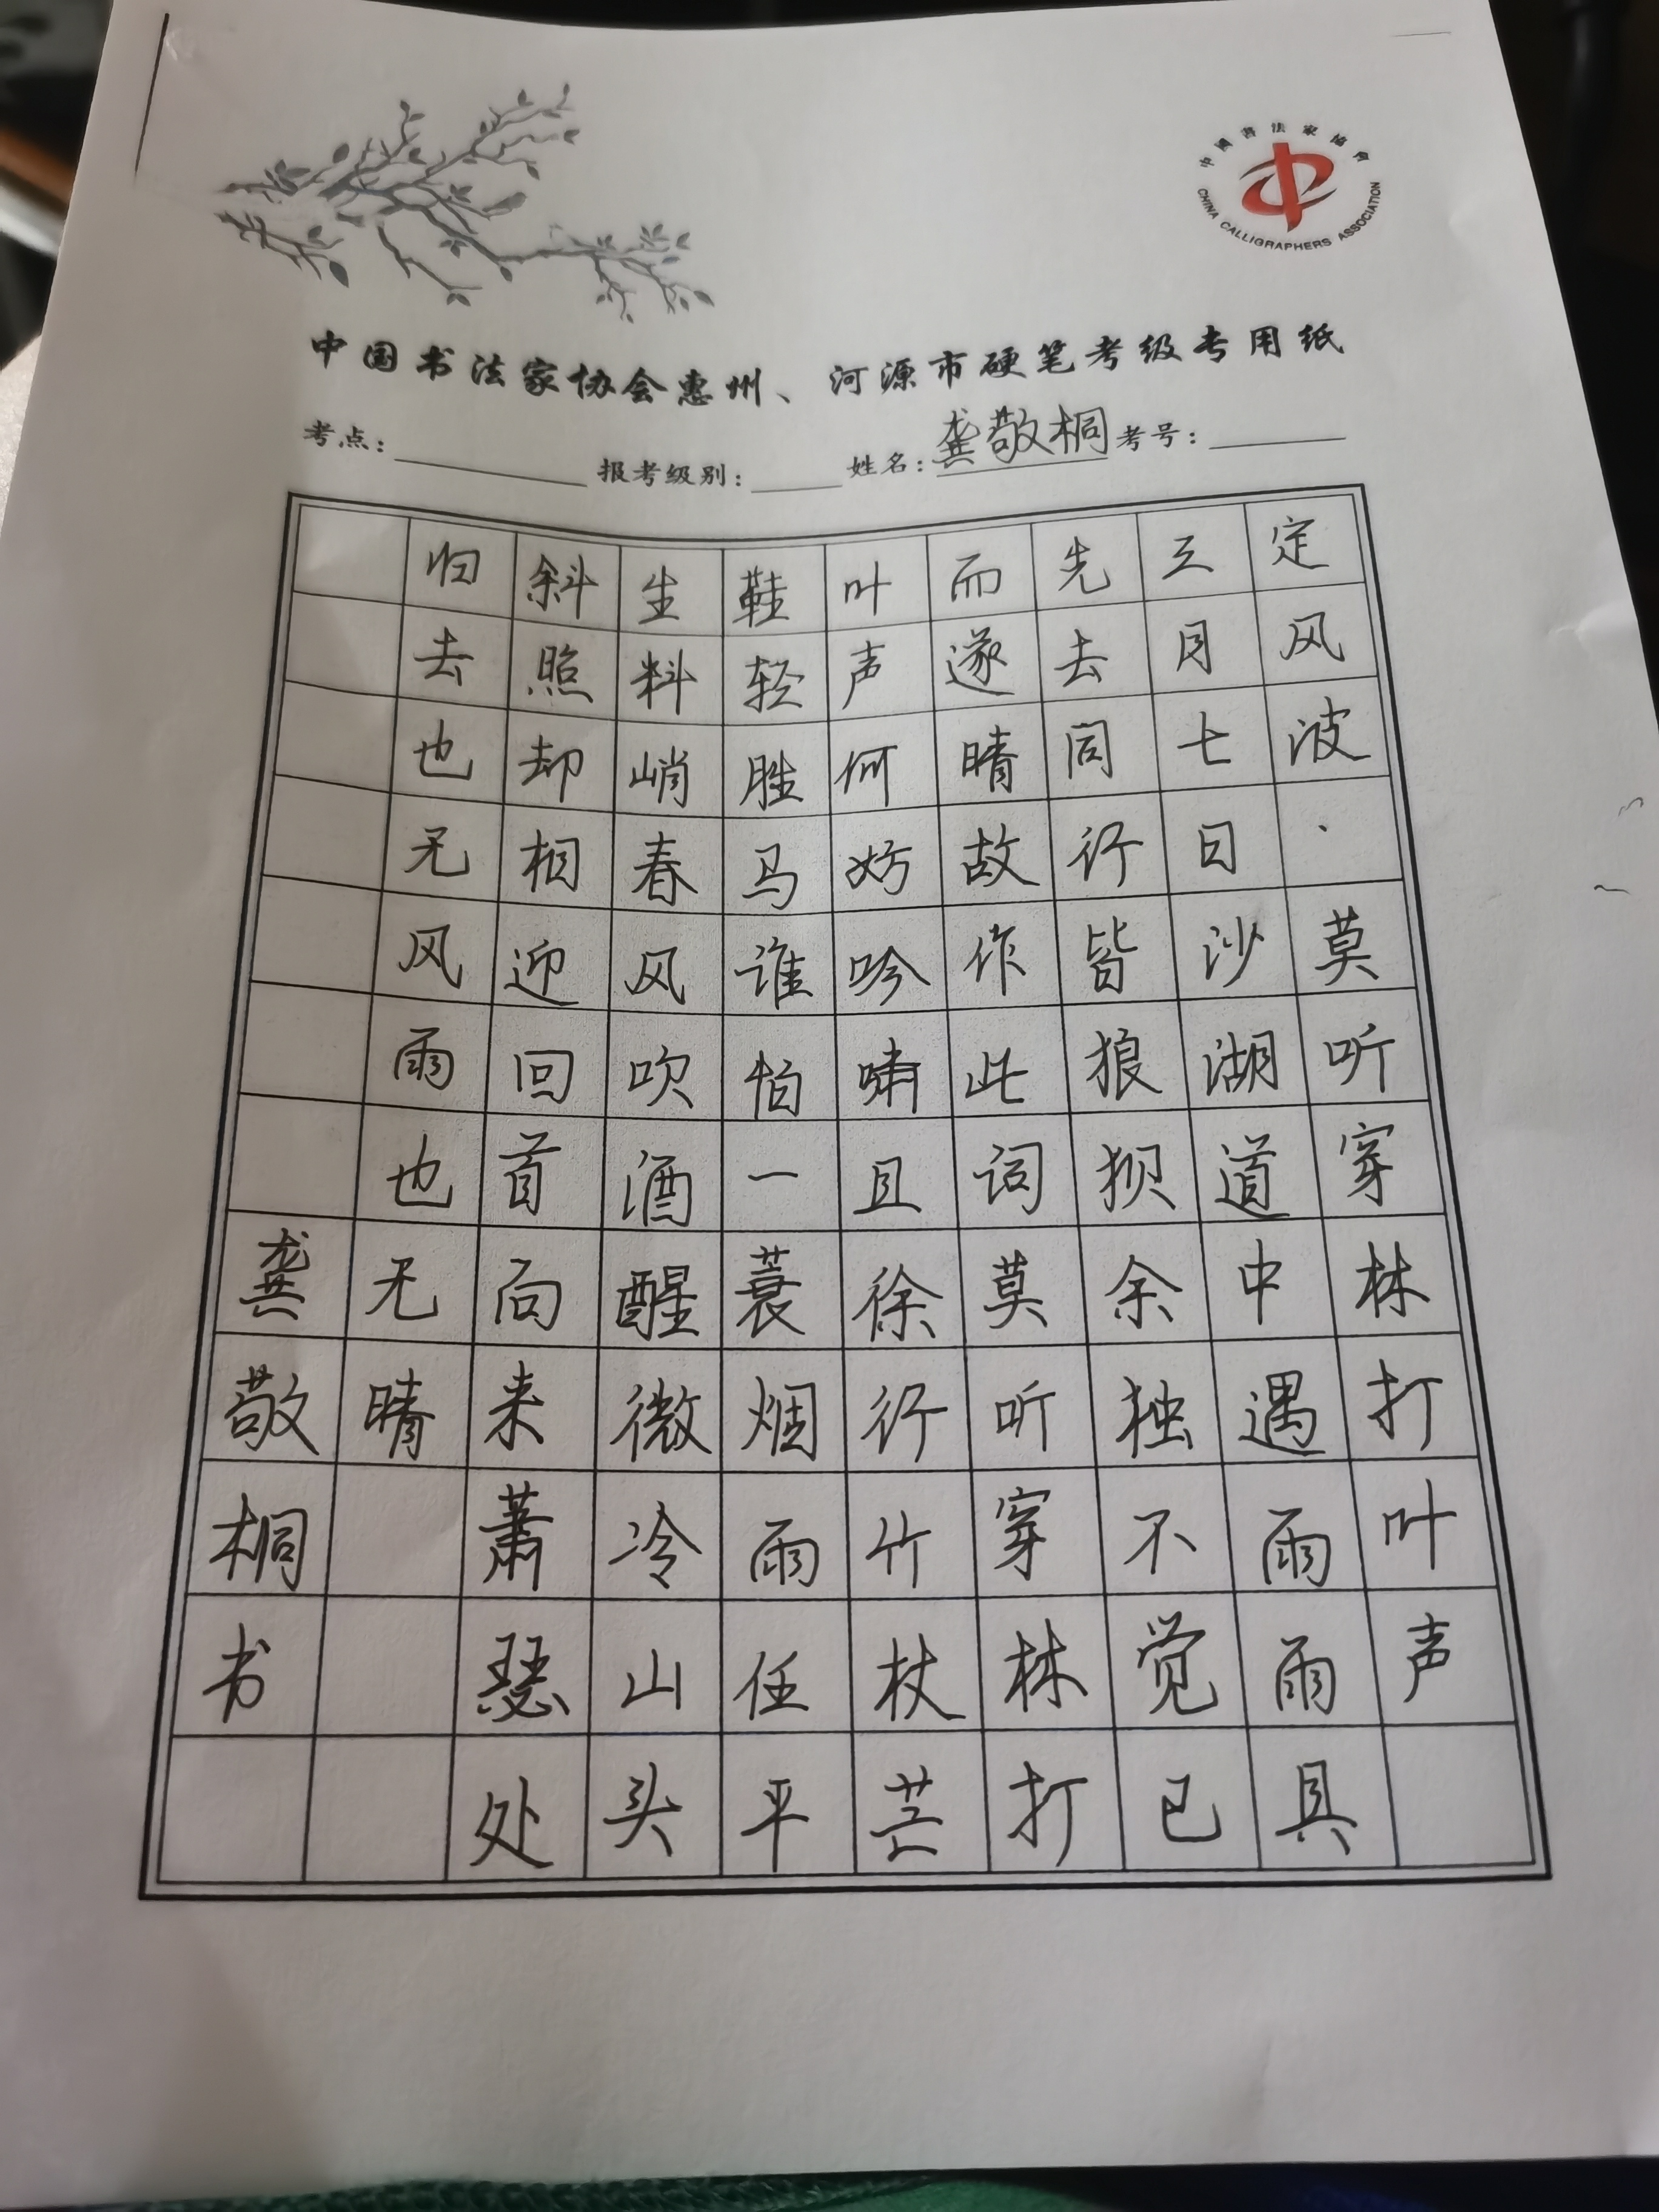 中国书法家协会
CHINA CALLIGRAPHERS ASSOCIATION
中国书法家协会惠州、河源市硬笔考级专用纸
考点： 报考级别： 姓名：龚敬桐 考号：
定风波·莫听穿林打叶声
三月七日沙湖道中遇雨雨具
先去同行皆狼狈余独不觉已
而遂晴故作此词莫听穿林打
叶声何妨吟啸且徐行竹杖芒
鞋轻胜马谁怕一蓑烟雨任平
生料峭春风吹酒醒微冷山头
斜照却相迎回首向来萧瑟处
归去也无风雨也无晴
龚敬桐书